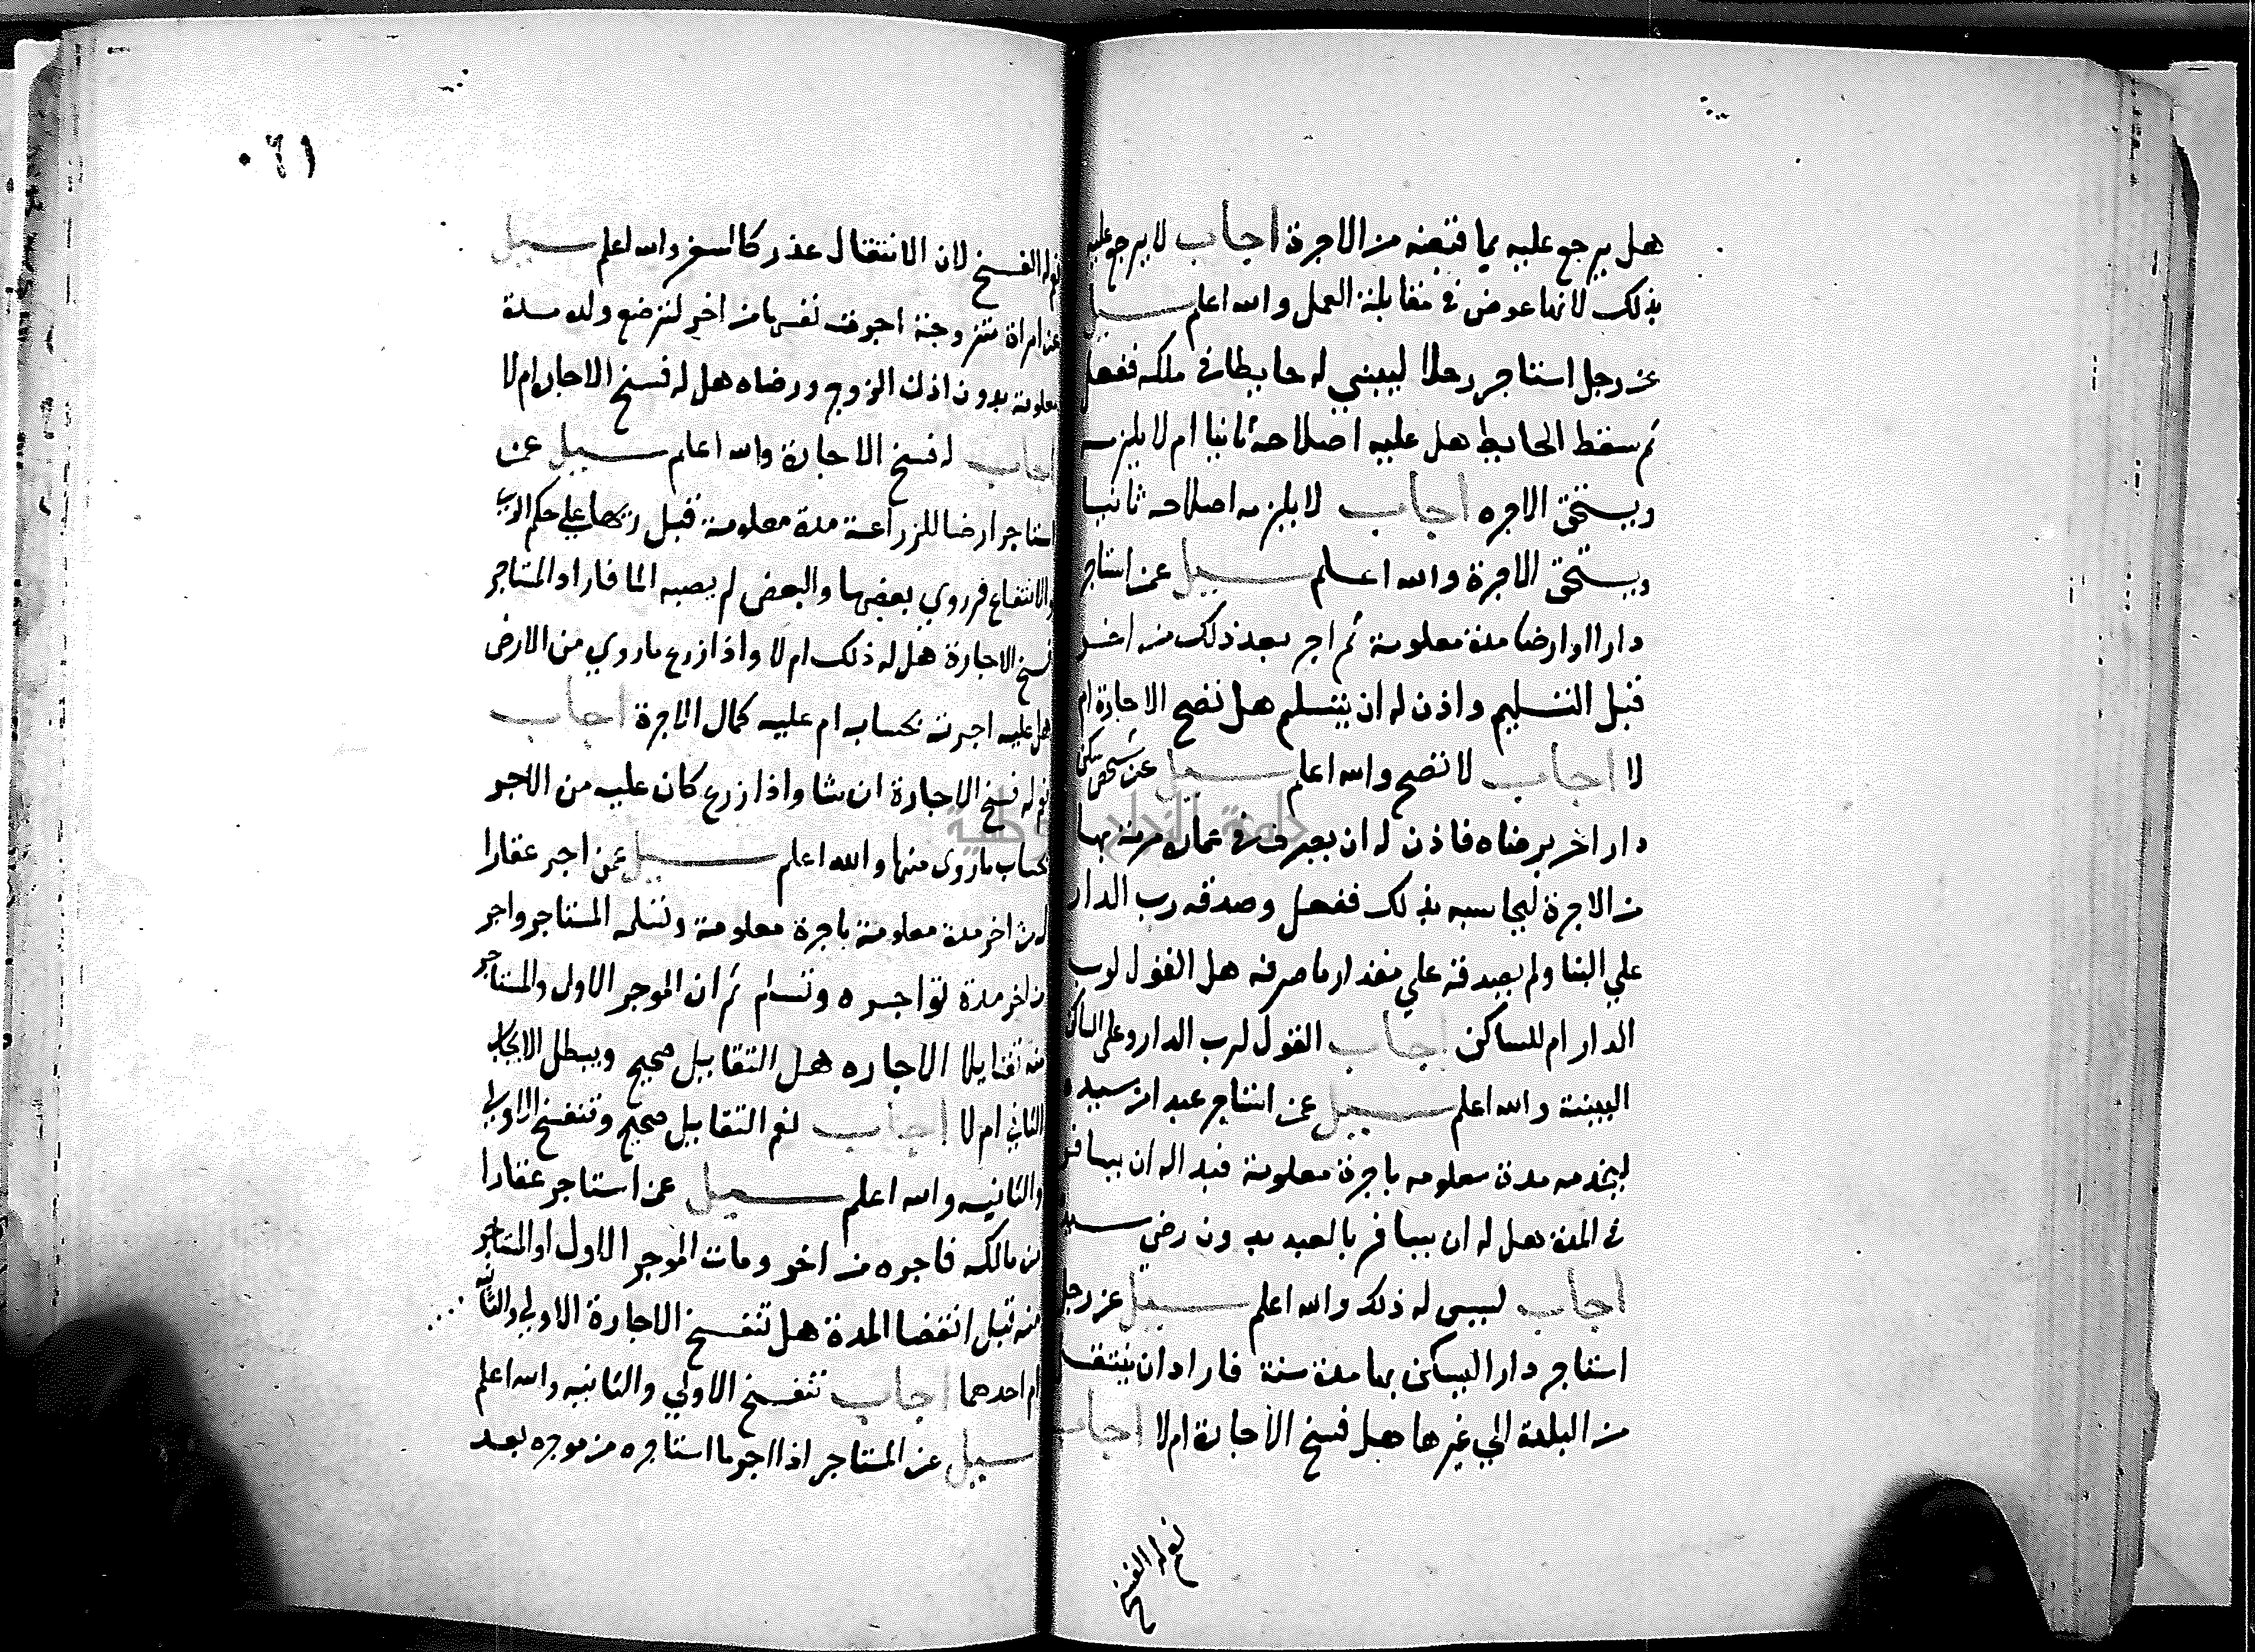 هل يرجع عليه بما قبضه من الاجرة اجاب لا يرجع عليه
بذلك لانها عوض في مقابلة العمل والله اعلم سيل
عن رجل استاجر رجلا ليبني له حايطا في ملكه ففعل
ثم سقط الحايط هل عليه اصلاحه ثانيا ام لا يلزمه
ويستحق الاجره اجاب لا يلزمه اصلاحه ثانيا
ويستحق الاجرة والله اعلم سيل عمن استاجر
دارا او ارضا مدة معلومة ثم اجر بعد ذلك من اخر
قبل التسليم واذن له ان يتسلم هل تصح الاجارة ام
لا اجاب لا تصح والله اعلم سيل عن شخص سكن
دار اخر برضاه فاذن له ان يصرف في عمارة مرمتها
من الاجرة ليحاسبه بذلك ففعل وصدقه رب الدار
علي البنا ولم يصدقه علي مقدار ما صرفه هل القول لرب
الدار ام للساكن اجاب القول لرب الدار وعلى الساكن
البينة والله اعلم سيل عمن استاجر عبدا من سيده
ليخدمه مدة معلومه باجرة معلومة فبدا له ان يسافر
في المدة هل له ان يسافر بالعبد بدون رضي سيده
اجاب ليس له ذلك والله اعلم سيل عن رجل
استاجر دارا ليسكن بها مدة سنة فاراد ان ينتقل
من البلدة الي غيرها هل فسخ الاجارة ام لا اجاب
نعم له الفسخ
٠٦١
نعم له الفسخ لان الانتقال عذر كالسفر والله اعلم سيل
عن امراة متزوجة اجرت نفسها من اخر لترضع ولده مدة
معلومة بدون اذن الزوج ورضاه هل له فسخ الاجارة ام لا
اجاب له فسخ الاجارة والله اعلم سيل عمن
استاجر ارضا للزراعة مدة معلومة قبل ريها علي حكم الري
والانتفاع فروي بعضها والبعض لم يصبه الما فاراد المستاجر
فسخ الاجارة هل له ذلك ام لا واذا زرع ما روي من الارض
هل عليه اجرته بحسابه ام عليه كمال الاجرة اجاب
نعم له فسخ الاجارة ان شا واذا زرع كان عليه من الاجر
بحساب ما روى منها والله اعلم سيل عمن اجر عقارا
له من اخر مدة معلومة باجرة معلومة وتسلمه المستاجر واجر
من اخر مدة تواجره وتسلم ثم ان الموجر الاول والمستاجر
منه تقايلا الاجاره هل التقايل صحيح ويبطل الايجار
الثاني ام لا اجاب نعم التقايل صحيح وتنفسخ الاولي
والثانيه والله اعلم سيل عمن استاجر عقارا
من مالكه فاجره من اخر ومات الموجر الاول او المستاجر
منه قبل انقضا المدة هل تنفسخ الاجارة الاولي والثانيه
ام احدهما اجاب تنفسخ الاولي والثانيه والله اعلم
سيل عن المستاجر اذا اجر ما استاجره من موجره بعد